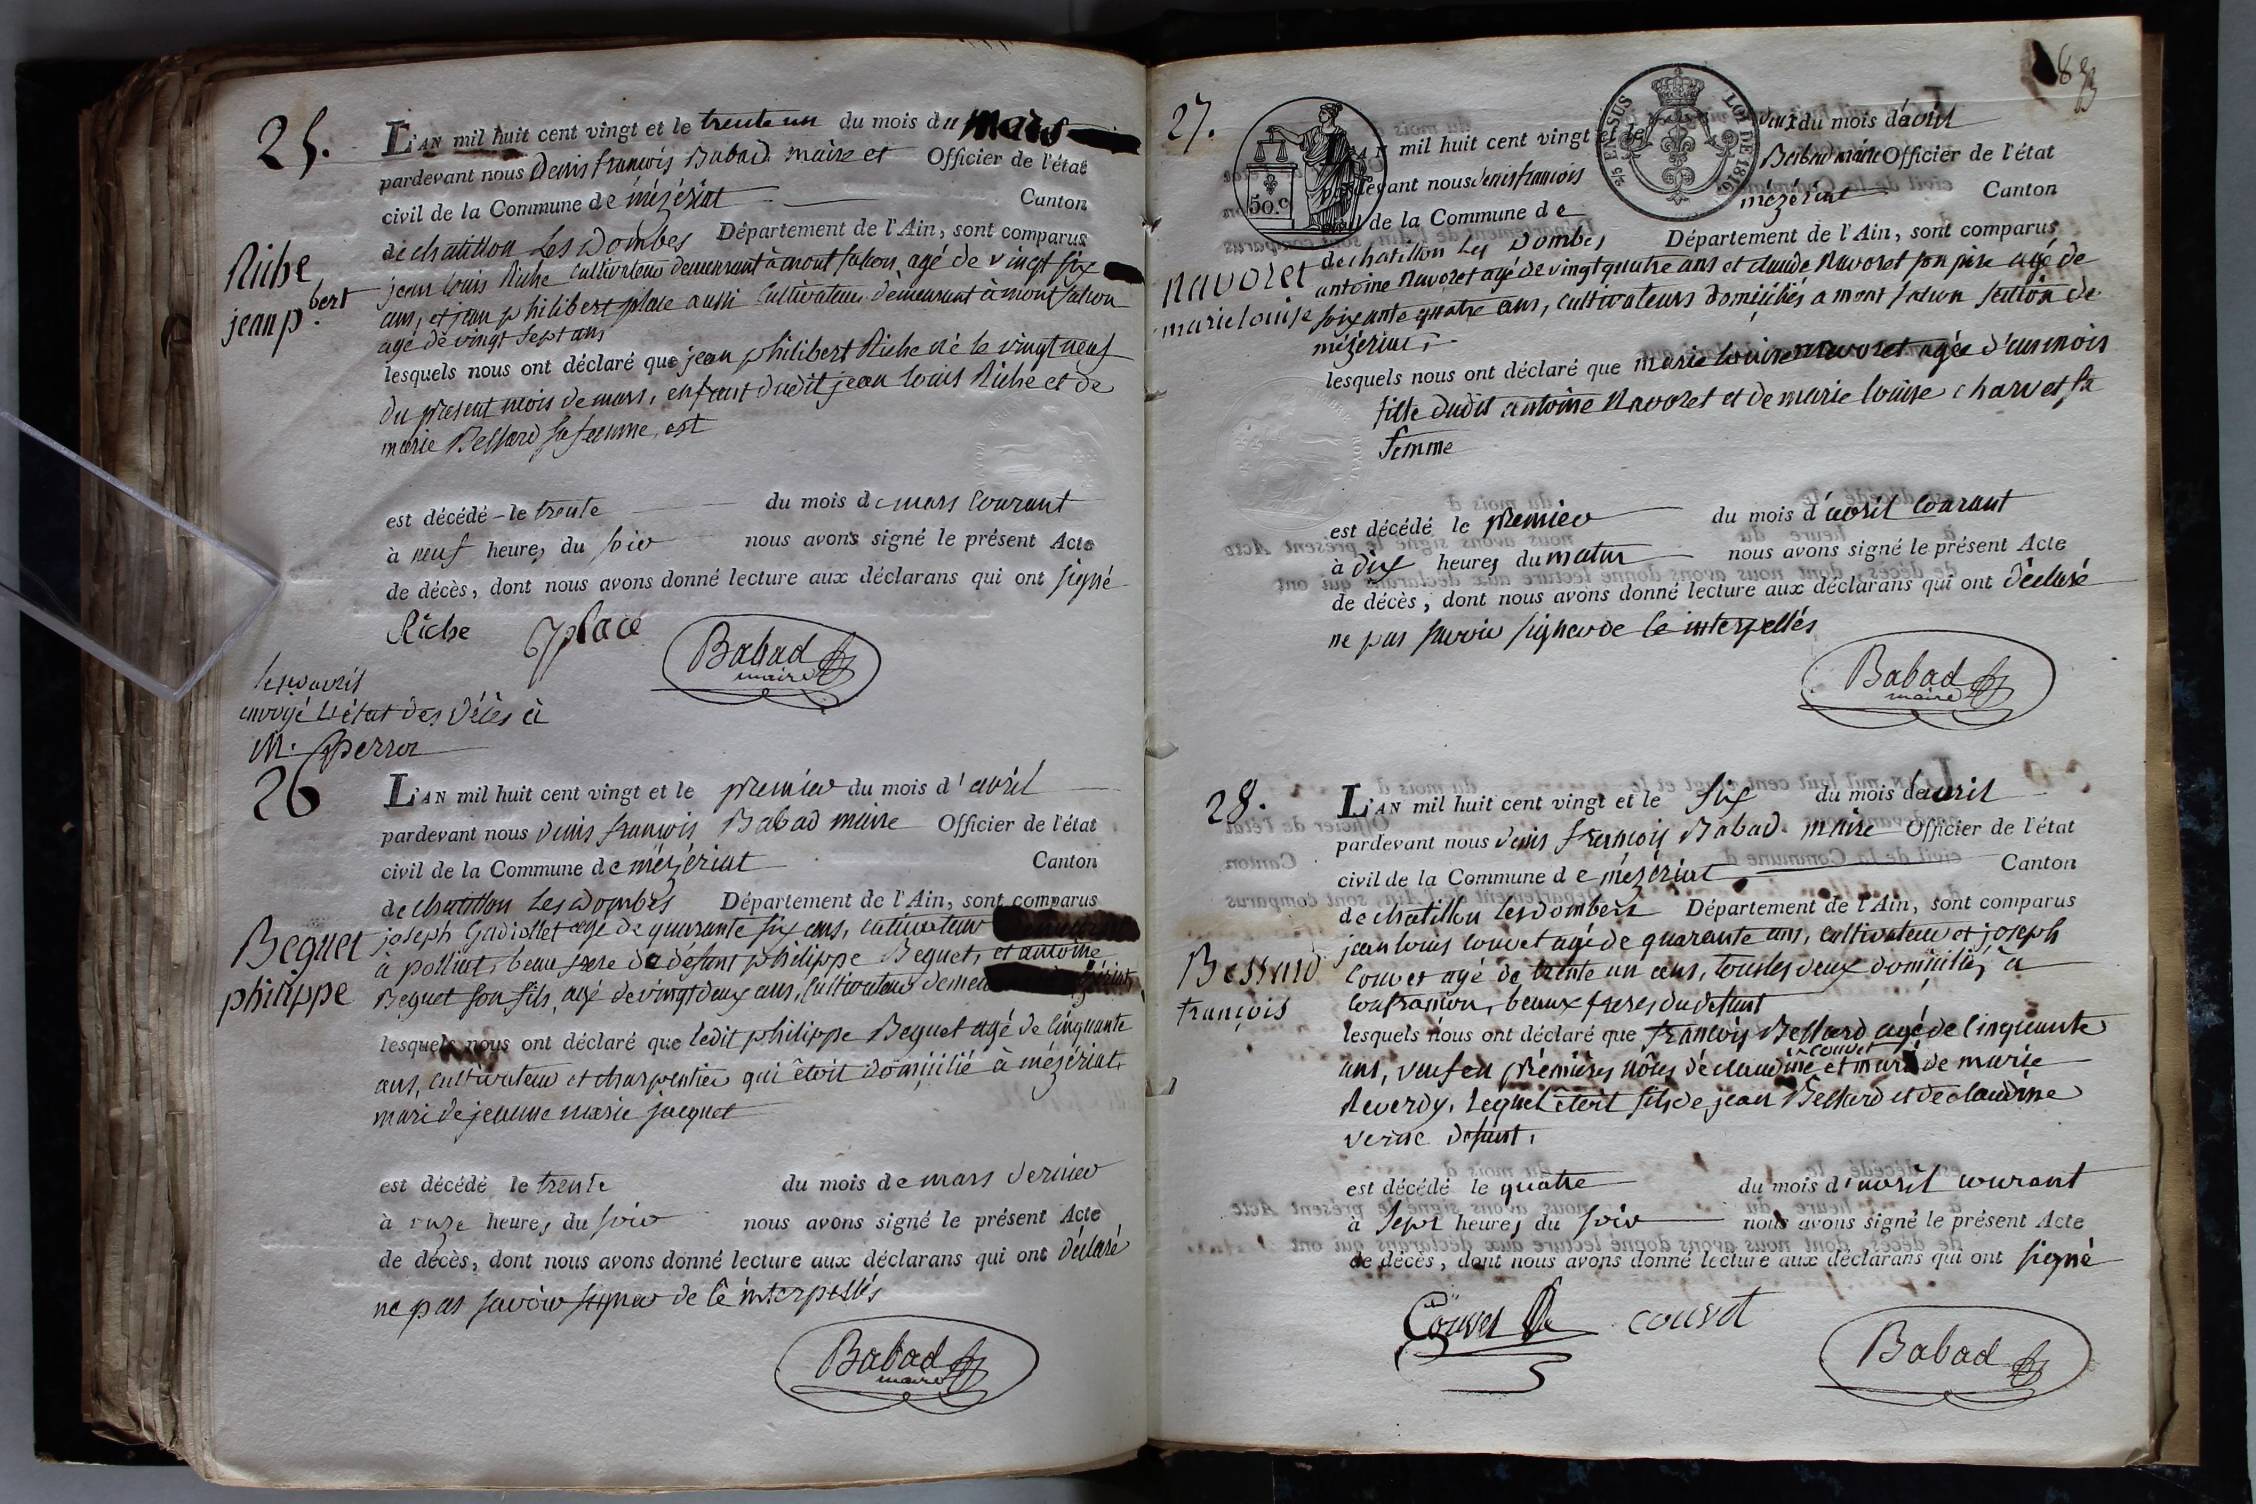 25.
L'AN mil huit cent vingt et le trente un du mois du mars
pardevant nous Denis françois Babad maire et Officier de l'état
civil de la Commune de mézériat Canton
de chatillon Les Dombes Département de l'Ain, sont comparus
jean louis Riche cultivateur demeurant à montfalcon, agé de vingt six
ans, et jean philibert place aussi cultivateur demeurant à montfalcon
agé de vingt sept ans
Riche
jean p.bert
lesquels nous ont déclaré que jean philibert Riche né le vingt neuf
du present mois de mars, enfant dudit jean louis Riche et de
marie Bessard sa femme, est
est décédé le trente du mois de mars courant
à neuf heures du soir nous avons signé le présent Acte
de décès, dont nous avons donné lecture aux déclarans qui ont signé
Riche place Babad
maire
avril
envoyé l'état des décès à
M. Perroz
26
L'AN mil huit cent vingt et le premier du mois d'avril
pardevant nous denis françois Babad maire Officier de l'état
civil de la Commune de mézériat Canton
de chatillon Les Dombes Département de l'Ain, sont comparus
joseph Gadiollet agé de quarante six ans, cultivateur
à polliat, beau frere de défunt philippe Beguet, et antoine
Beguet son fils, agé de vingt deux ans, cultivateur
Beguet
philippe
lesquels nous ont déclaré que ledit philippe Beguet agé de cinquante
ans, cultivateur et charpentier qui étoit domicilié à mézériat,
mari de jeanne marie jacquet
est décédé le trente du mois de mars dernier
à onze heures du soir nous avons signé le présent Acte
de décès, dont nous avons donné lecture aux déclarans qui ont déclaré
ne pas savoir signer de ce interpellés
Babad
maire
83
27.
50.c
25 EN SUS
LOI DE 1816
L'AN mil huit cent vingt et le deux du mois d'avril
pardevant nous denis françois Babad maire Officier de l'état
civil de la Commune de mézériat Canton
de chatillon Les Dombes Département de l'Ain, sont comparus
antoine Navoret agé de vingt quatre ans et claude Navoret son pere agé de
soixante quatre ans, cultivateurs domiciliés a mont falcon section de
mézériat,
Navoret
marie louise
lesquels nous ont déclaré que marie louise Navoret agée d'un mois
fille dudit antoine Navoret et de marie louise charvet sa
femme
est décédé le premier du mois d'avril courant
à dix heures du matin nous avons signé le présent Acte
de décès, dont nous avons donné lecture aux déclarans qui ont déclaré
ne pas savoir signer de ce interpellés
Babad
maire
28.
L'AN mil huit cent vingt et le six du mois d'avril
pardevant nous denis françois Babad maire Officier de l'état
civil de la Commune de mézériat Canton
de chatillon les dombes Département de l'Ain, sont comparus
jean louis couvet agé de quarante ans, cultivateur et joseph
Couvet agé de trente un ans, tous les deux domiciliés à
Confrançon, beaux freres du defunt
Bessard
françois
lesquels nous ont déclaré que françois Bessard agé de cinquante
ans, veuf en prémières nôces de claudine couvet et mari de marie
Reverdy, lequel étoit fils de jean Bessard et de claudine
verne defunt,
est décédé le quatre du mois d'avril courant
à sept heures du soir nous avons signé le présent Acte
de décès, dont nous avons donné lecture aux déclarans qui ont signé
Couvet couvet
Babad